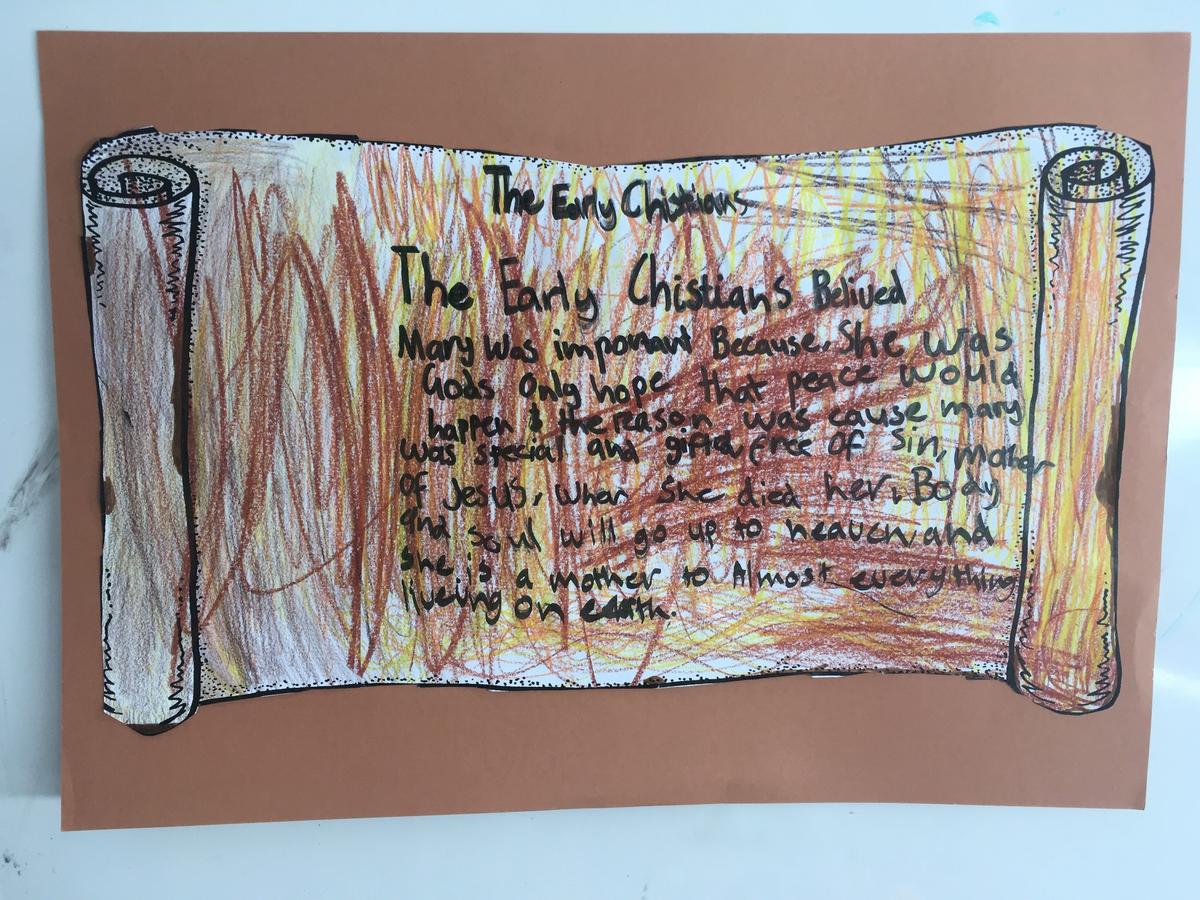 The Early Chistians
The Early Chistians Belived
Mary was important Because She was
Gods Only hope that peace would
happen & the reason was cause mary
was special and gifted free of sin, mother
of Jesus, when she died her Body
and soul will go up to heaven and
She is a mother to Almost everything
liveing on earth.